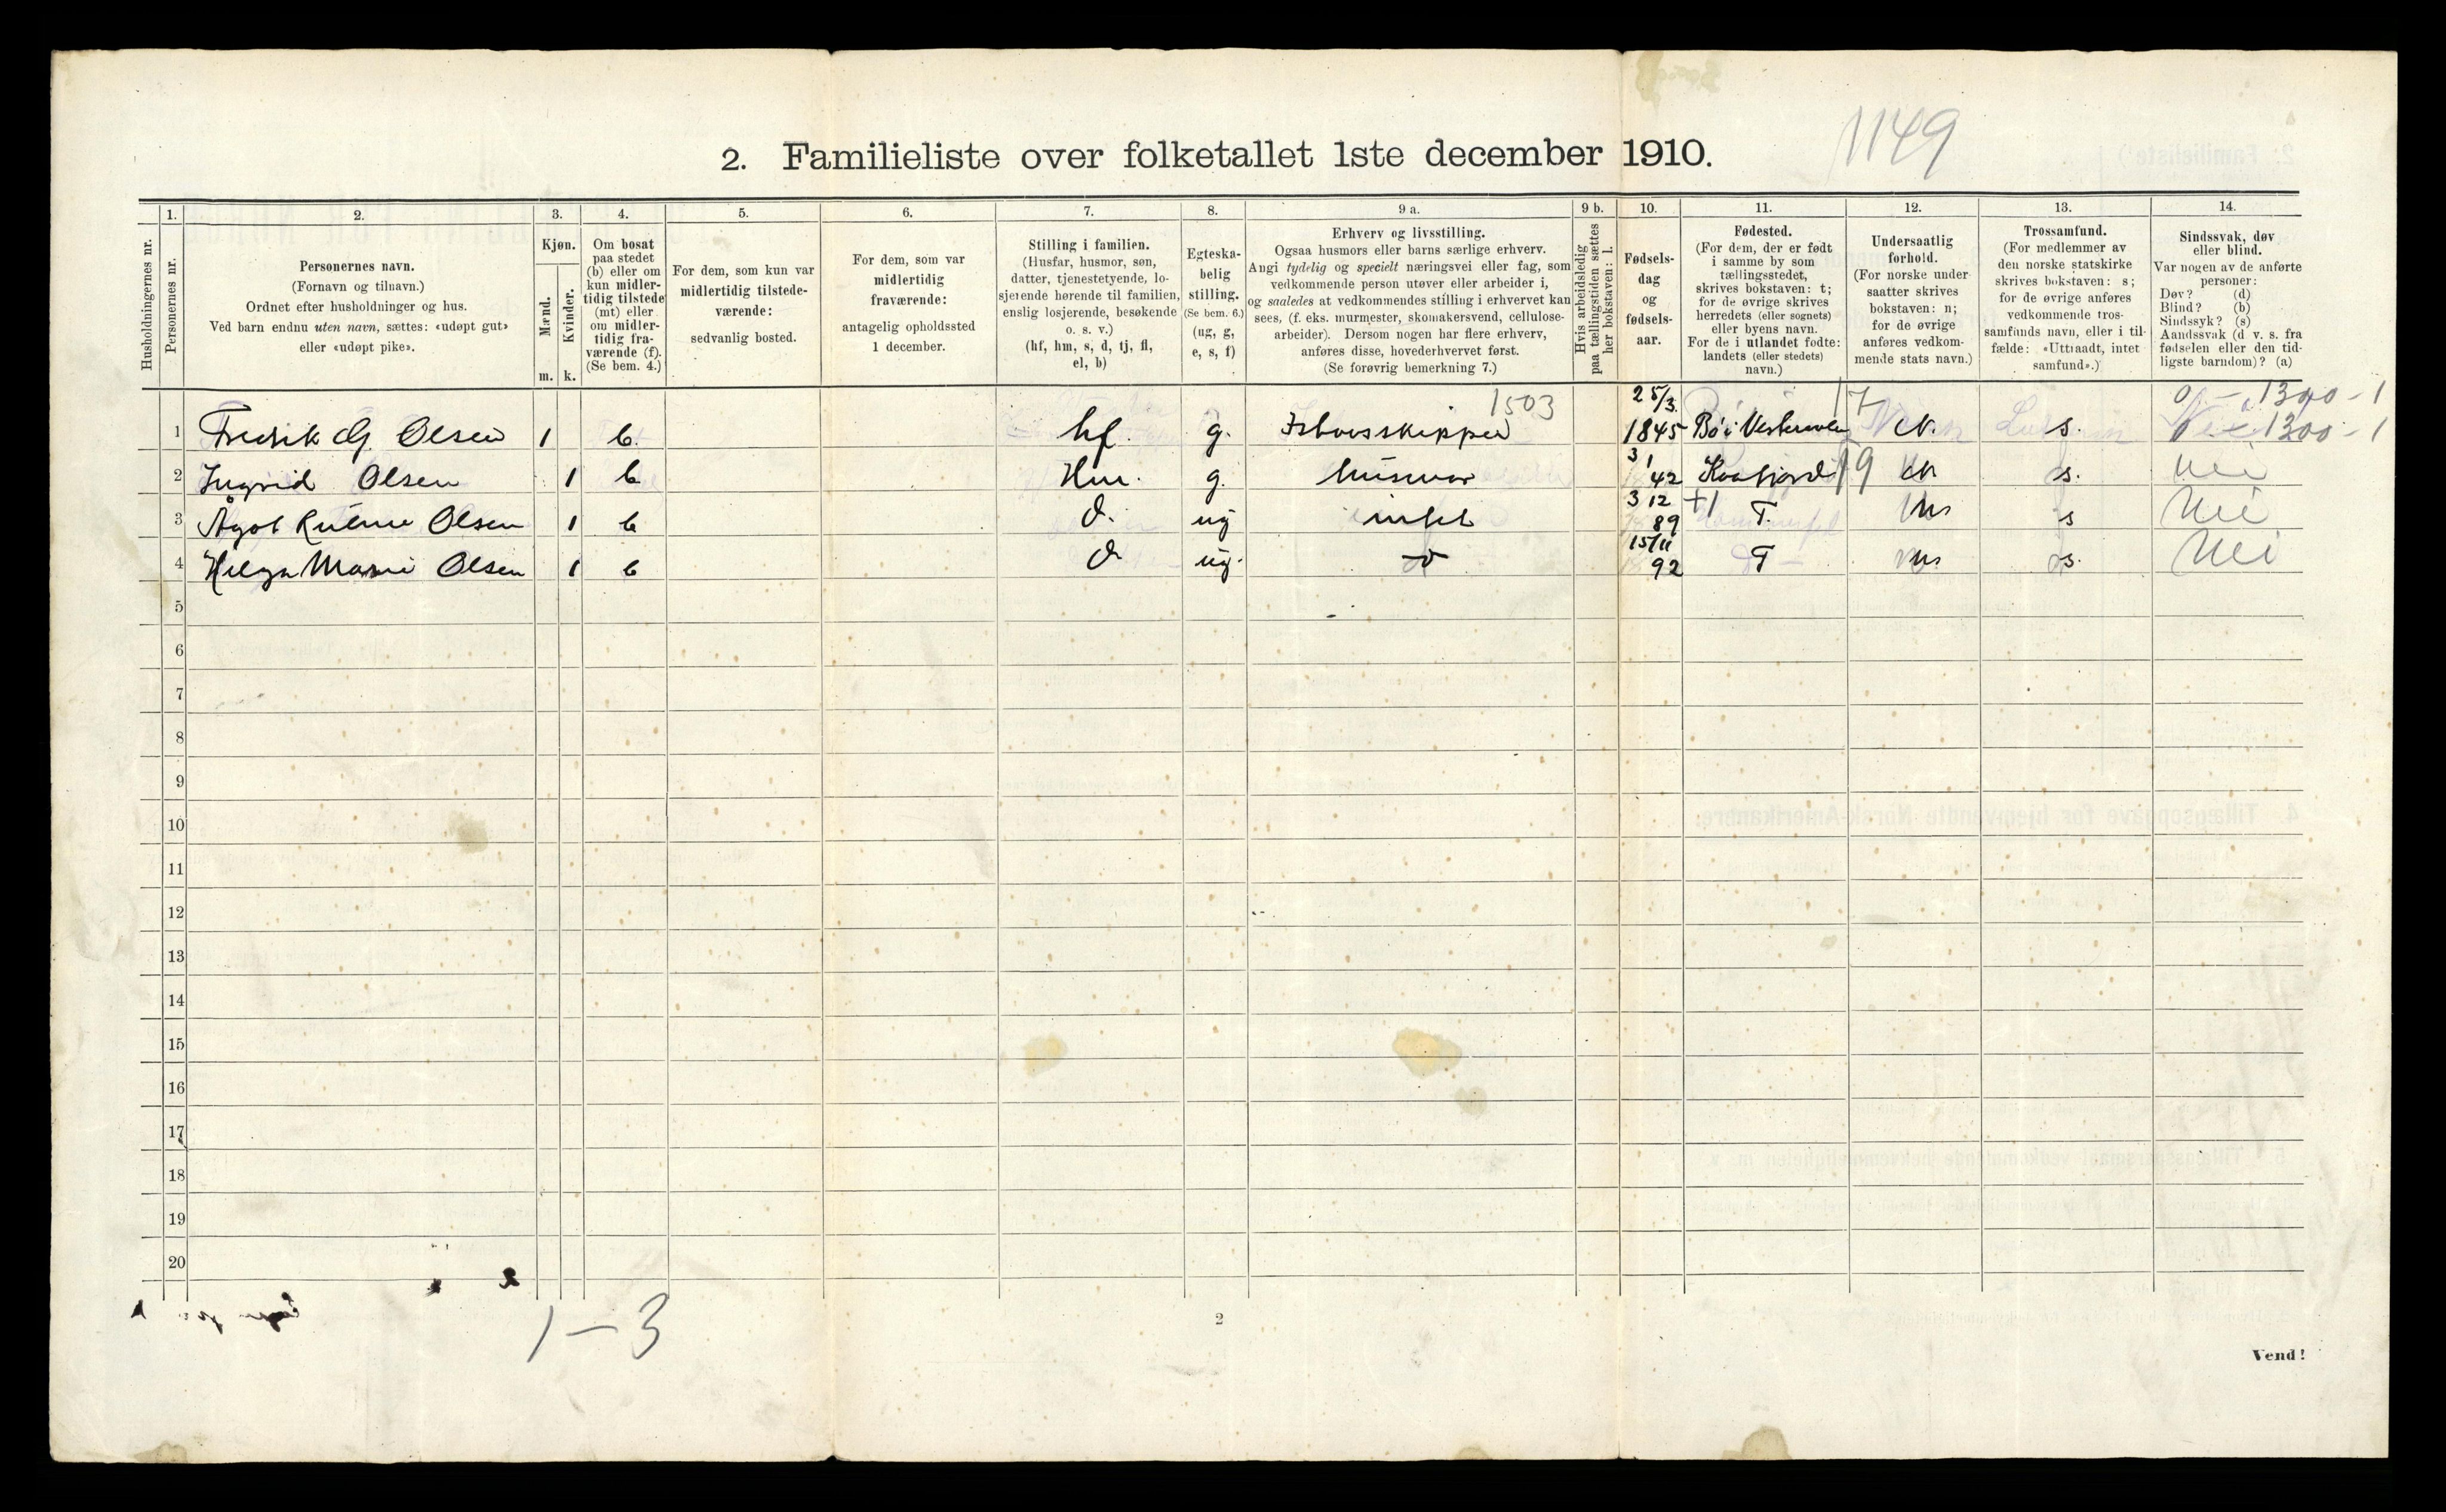 1149
2. Familieliste over folketallet 1ste december 1910.
Husholdningernes nr.
1.
Personernes nr.
2.
Personernes navn.
(Fornavn og tilnavn.)
Ordnet efter husholdninger og hus.
Ved barn endnu uten navn, sættes: «udøpt gut»
eller «udøpt pike».
3.
Kjøn.
Mænd.
Kvinder.
m. k.
4.
Om bosat
paa stedet
(b) eller om
kun midler-
tidig tilstede
(mt) eller
om midler-
tidig fra-
værende (f).
(Se bem. 4.)
5.
For dem, som kun var
midlertidig tilstede-
værende:
sedvanlig bosted.
6.
For dem, som var
midlertidig
fraværende:
antagelig opholdssted
1 december.
7.
Stilling i familien.
(Husfar, husmor, søn,
datter, tjenestetyende, lo-
sjerende hørende til familien,
enslig losjerende, besøkende
o. s. v.)
(hf, hm, s, d, tj, fl,
el, b)
8.
Egteska-
belig
stilling.
(Se bem. 6.)
(ug, g,
e, s, f)
9 a.
Erhverv og livsstilling.
Ogsaa husmors eller barns særlige erhverv.
Angi tydelig og specielt næringsvei eller fag, som
vedkommende person utøver eller arbeider i,
og saaledes at vedkommendes stilling i erhvervet kan
sees, (f. eks. murmester, skomakersvend, cellulose-
arbeider). Dersom nogen har flere erhverv,
anføres disse, hovederhvervet først.
(Se forøvrig bemerkning 7.)
9 b.
Hvis arbeidsledig
paa tællingstiden sættes
her bokstaven: l.
10.
Fødsels-
dag
og
fødsels-
aar.
11.
Fødested.
(For dem, der er født
i samme by som
tællingsstedet,
skrives bokstaven: t;
for de øvrige skrives
herredets (eller sognets)
eller byens navn.
For de i utlandet fødte:
landets (eller stedets)
navn.)
12.
Undersaatlig
forhold.
(For norske under-
saatter skrives
bokstaven: n;
for de øvrige
anføres vedkom-
mende stats navn.)
13.
Trossamfund.
(For medlemmer av
den norske statskirke
skrives bokstaven: s;
for de øvrige anføres
vedkommende tros-
samfunds navn, eller i til-
fælde: «Uttraadt, intet
samfund».)
14.
Sindssvak, døv
eller blind.
Var nogen av de anførte
personer:
Døv? (d)
Blind? (b)
Sindssyk? (s)
Aandssvak (d. v. s. fra
fødselen eller den tid-
ligste barndom)? (a)
1503 17 0 - 1300 - 1
1 Fredrik G. Olsen 1 b. hf. g. Ishavsskipper 25/3 1845 Bø i Vesteraalen N. s. 1300 - 1
2 Ingrid Olsen 1 b Hm. g. husmor 3/1 42 Kaafjord 19 N s. Nei
3 Ågot 1 b d. ug intet 3/12 89 +1 T. n s Nei
Olsen
4 Helga Marie Olsen 1 b d ug. 15/11 92 T n. s. Nei
5
6
7
8
9
10
11
12
13
14
15
16
17
18
19
20
1-3
2
Vend!